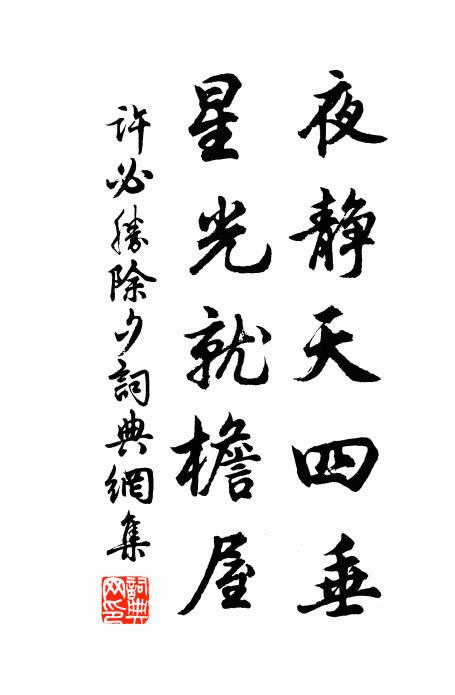 夜靜天四垂
星光就檐屋
許必勝除夕詞典網集
詞典網印